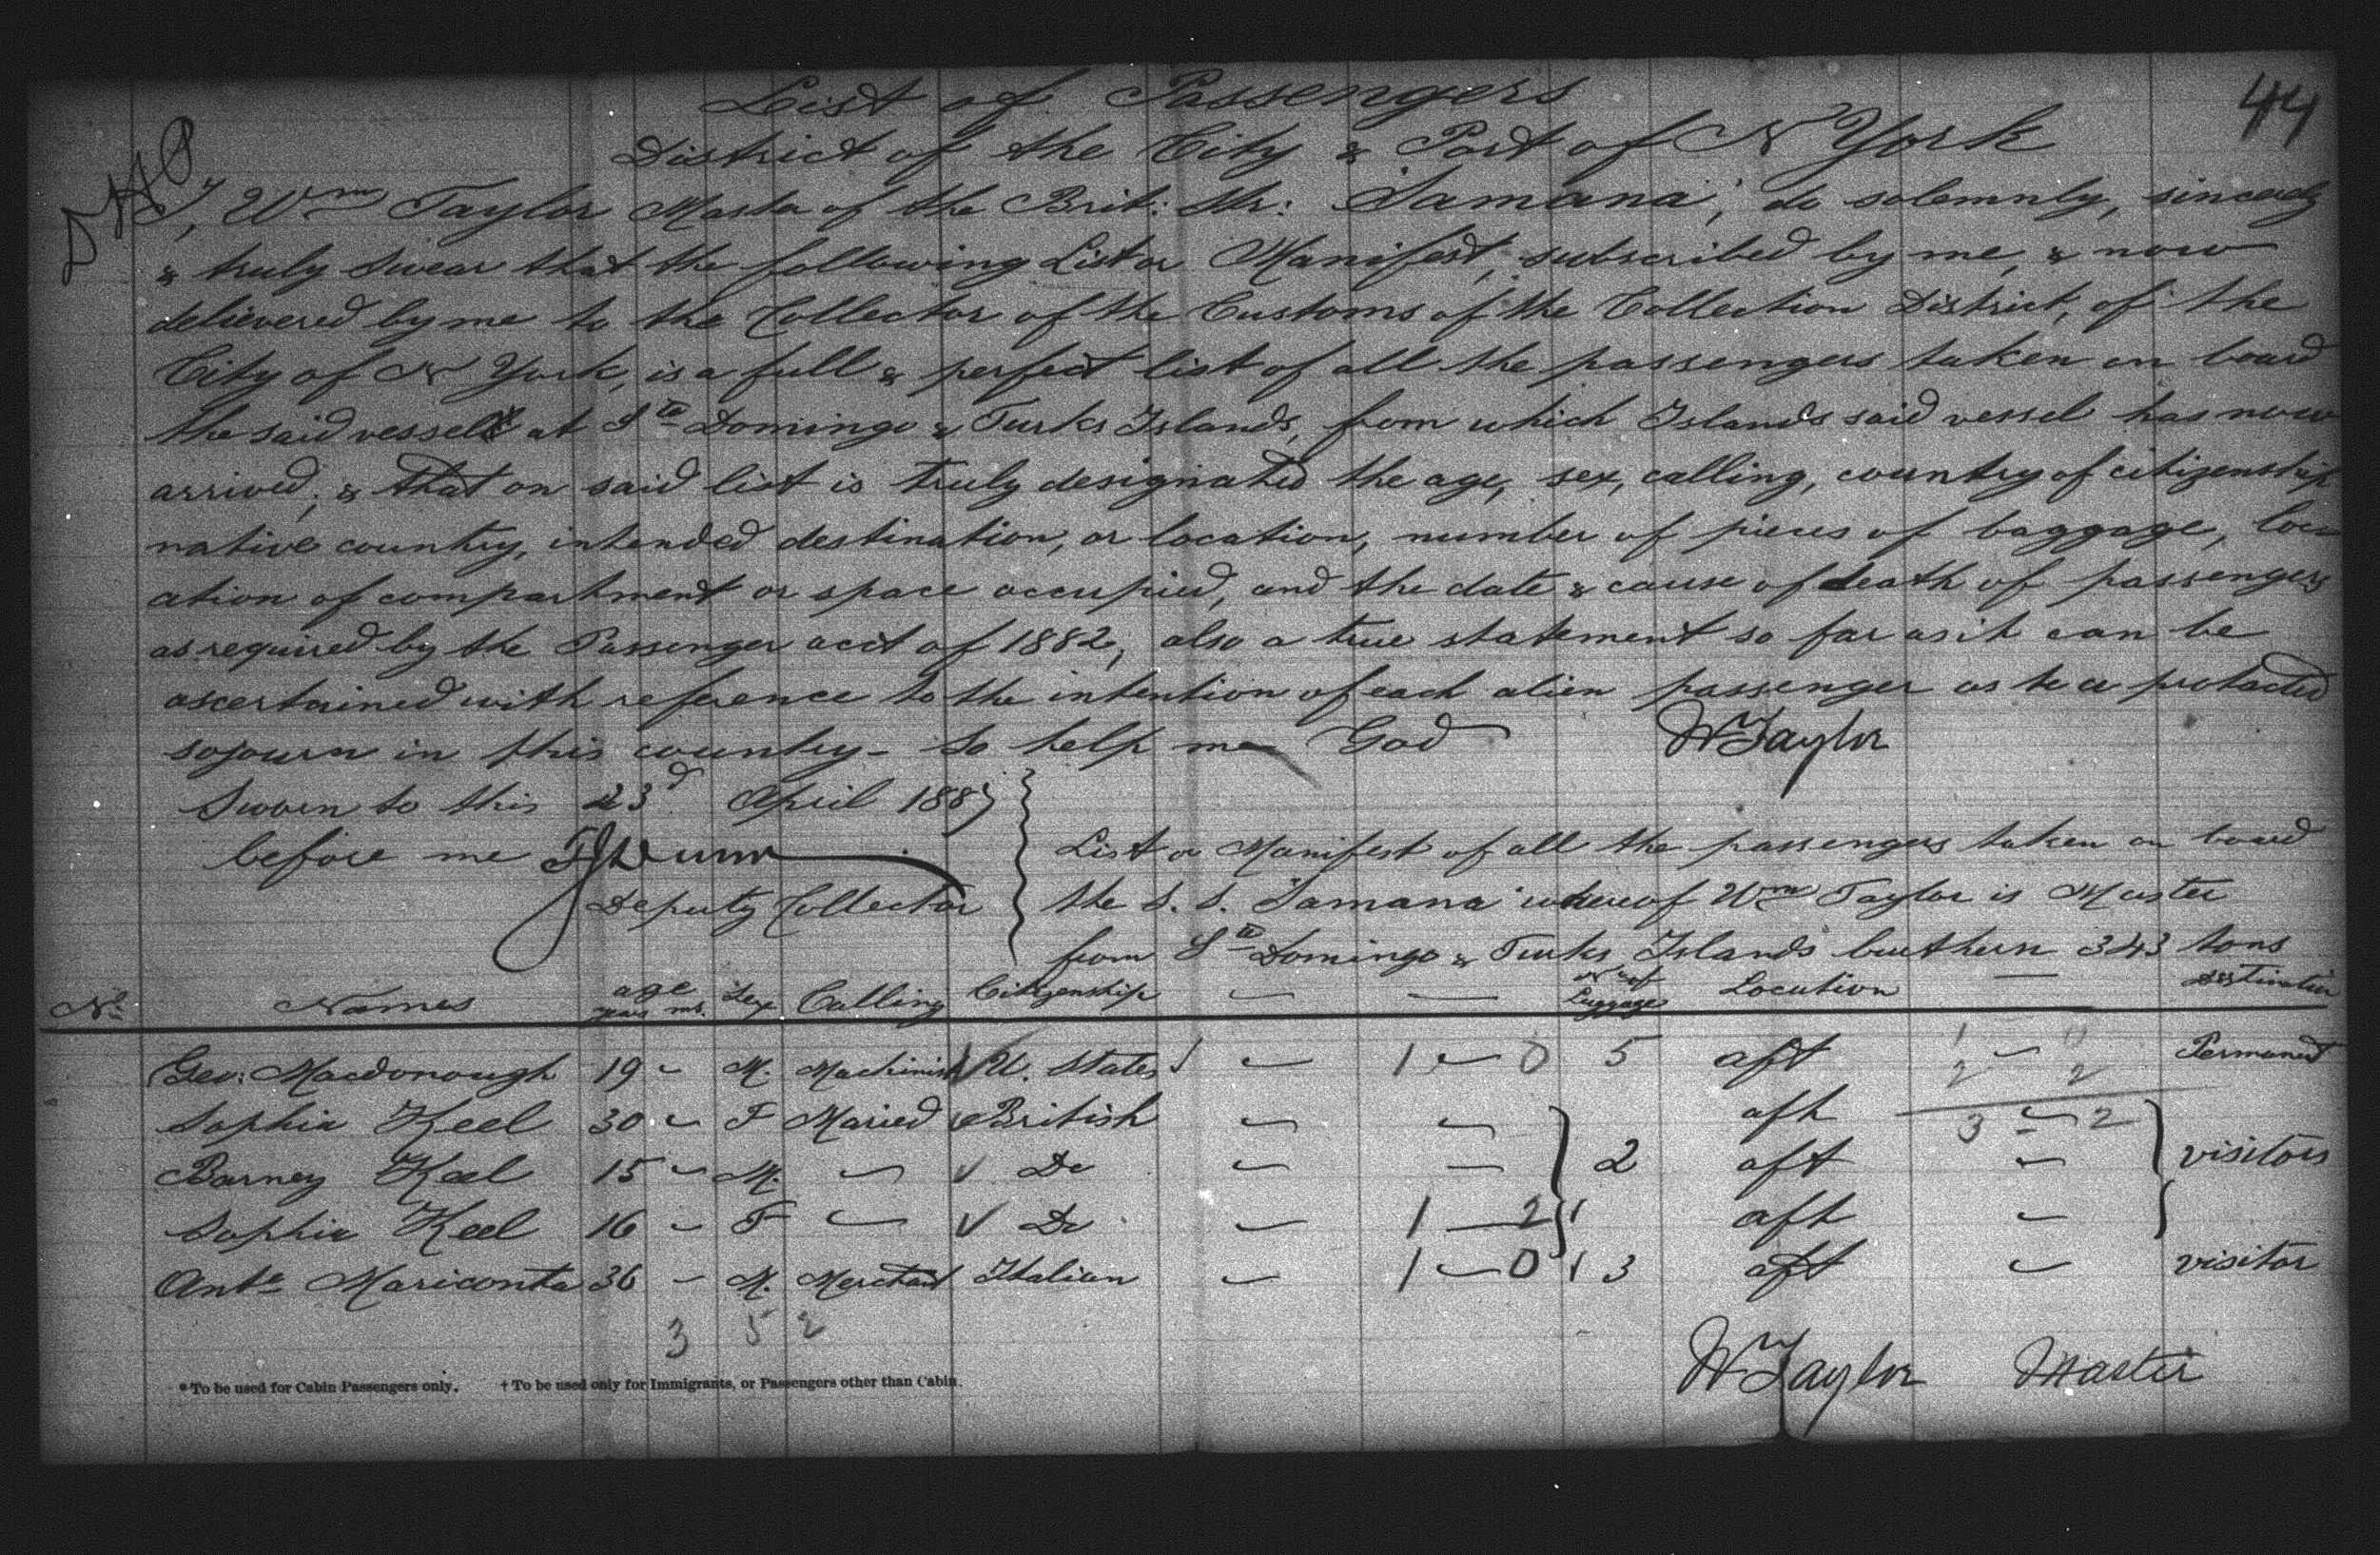 List of Passengers
44
District of the City & Port of N York
I, Wm Taylor Master of the Brit: Str: "Samana", do solemnly, sincerely
& truly swear that the following List or Manifest, subscribed by me, & now
delievered by me to the Collector of the Customs of the Collection District, of the
City of N York, is a full & perfect list of all the passengers taken on board
the said vessel at Sto Domingo & Turks Islands, from which Islands said vessel has now
arrived; & that on said list is truly designated the age, sex, calling, country of citizenship
native country, intended destination, or location, number of pieces of baggage, loc-
ation of compartment or space occupied, and the date & cause of death of passengers
as required by the Passenger acct of 1882; also a true statement so far as it can be
ascertained with reference to the intention of each alien passenger as to a protacted
sojourn in this country - So help me God W Taylor
Sworn to this 23d April 1887
before me
Deputy Collector
List or Manifest of all the passengers taken on board
the S. S. "Samana" whereof Wm Taylor is Master
from Sto Domingo & Turks Islands burthern 343 tons
No Names age years ms. Sex Calling Citizenship — — No of Luggage Location — Destination
Geo: Macdonough 19 - M. Machinist U. States - 1 - 0 5 aft 1 - 0 Permanent
2 2
Sophia Keel 30 - F Maried British - - aft 3 - 2
Barney Keel 15 - M. - Do - - 2 aft - visitors
Sophia Keel 16 - F - Do - 1 - 2 aft -
Anto Mariconta 36 - M. Merchant Italian - 1 - 0 3 aft - visitor
3 5 2
W Taylor Master
*To be used for Cabin Passengers only. †To be used only for Immigrants, or Passengers other than Cabin.